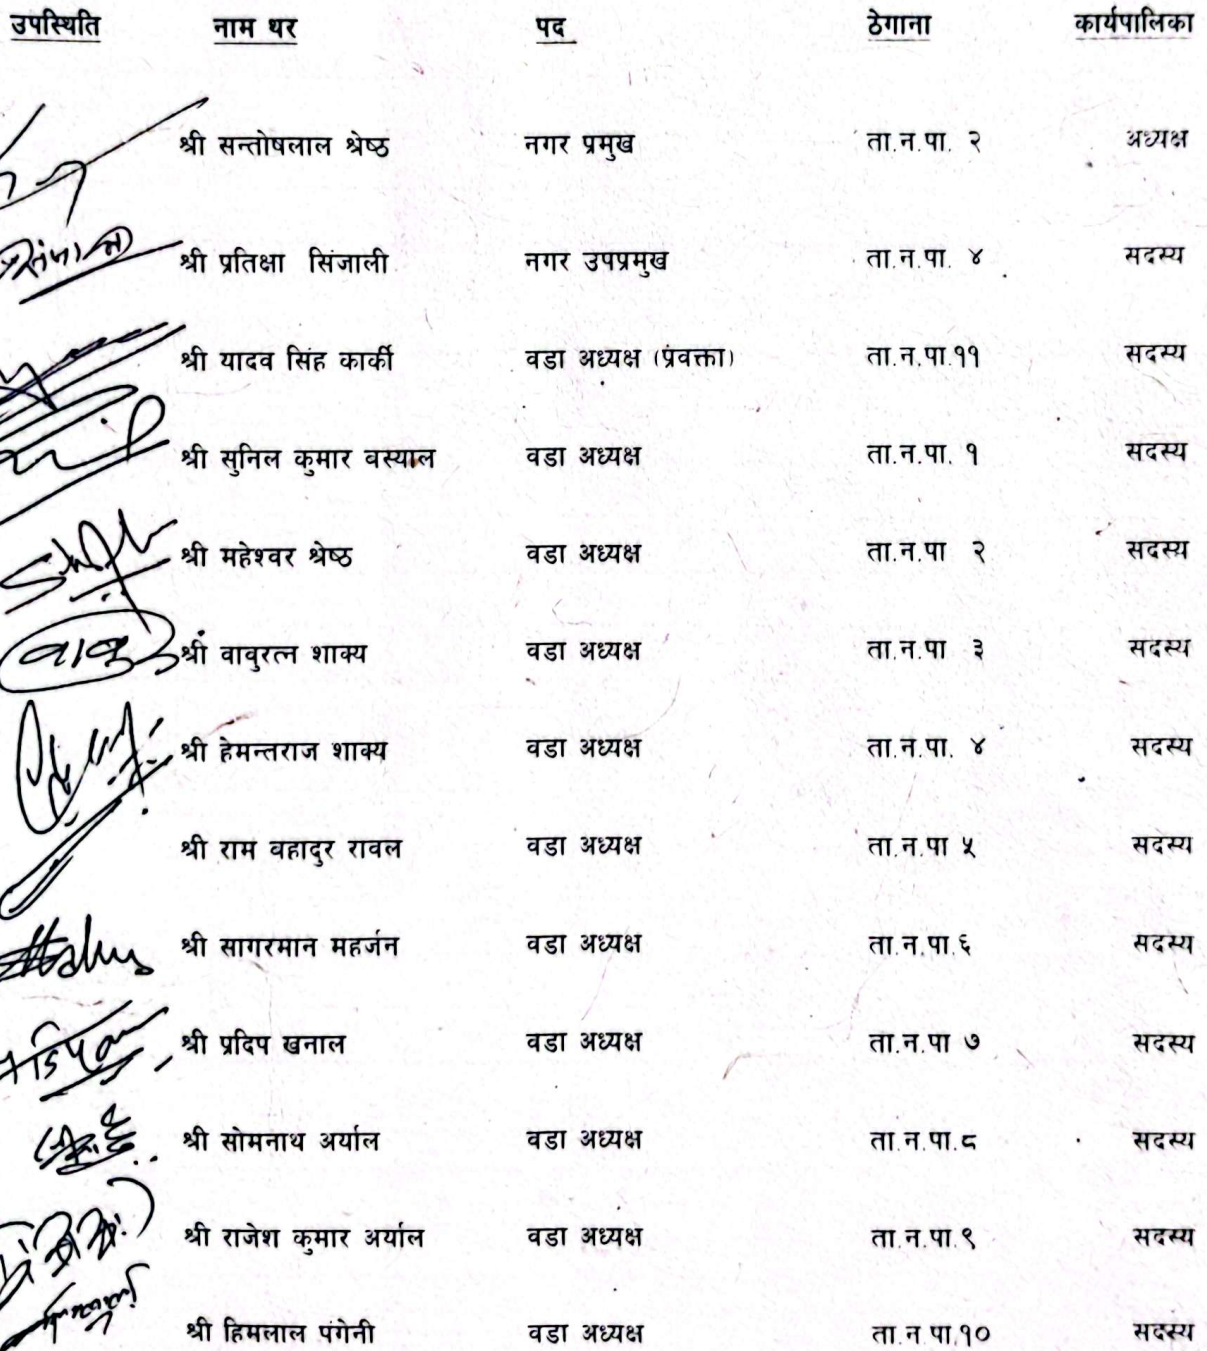 उपस्थिति नाम थर पद ठेगाना कार्यपालिका
श्री सन्तोषलाल श्रेष्ठ नगर प्रमुख ता.न.पा. २ अध्यक्ष
श्री प्रतिक्षा सिंजाली नगर उपप्रमुख ता.न.पा. ४ सदस्य
श्री यादव सिंह कार्की वडा अध्यक्ष (प्रवक्ता) ता.न.पा.११ सदस्य
श्री सुनिल कुमार वस्याल वडा अध्यक्ष ता.न.पा. १ सदस्य
श्री महेश्वर श्रेष्ठ वडा अध्यक्ष ता.न.पा २ सदस्य
वावु श्री वावुरत्न शाक्य वडा अध्यक्ष ता.न.पा ३ सदस्य
श्री हेमन्तराज शाक्य वडा अध्यक्ष ता.न.पा. ४ सदस्य
श्री राम वहादुर रावल वडा अध्यक्ष ता.न.पा ५ सदस्य
श्री सागरमान महर्जन वडा अध्यक्ष ता.न.पा.६ सदस्य
श्री प्रदिप खनाल वडा अध्यक्ष ता.न.पा ७ सदस्य
श्री सोमनाथ अर्याल वडा अध्यक्ष ता.न.पा.८ सदस्य
श्री राजेश कुमार अर्याल वडा अध्यक्ष ता.न.पा.९ सदस्य
श्री हिमलाल पंगेनी वडा अध्यक्ष ता.न.पा.१० सदस्य